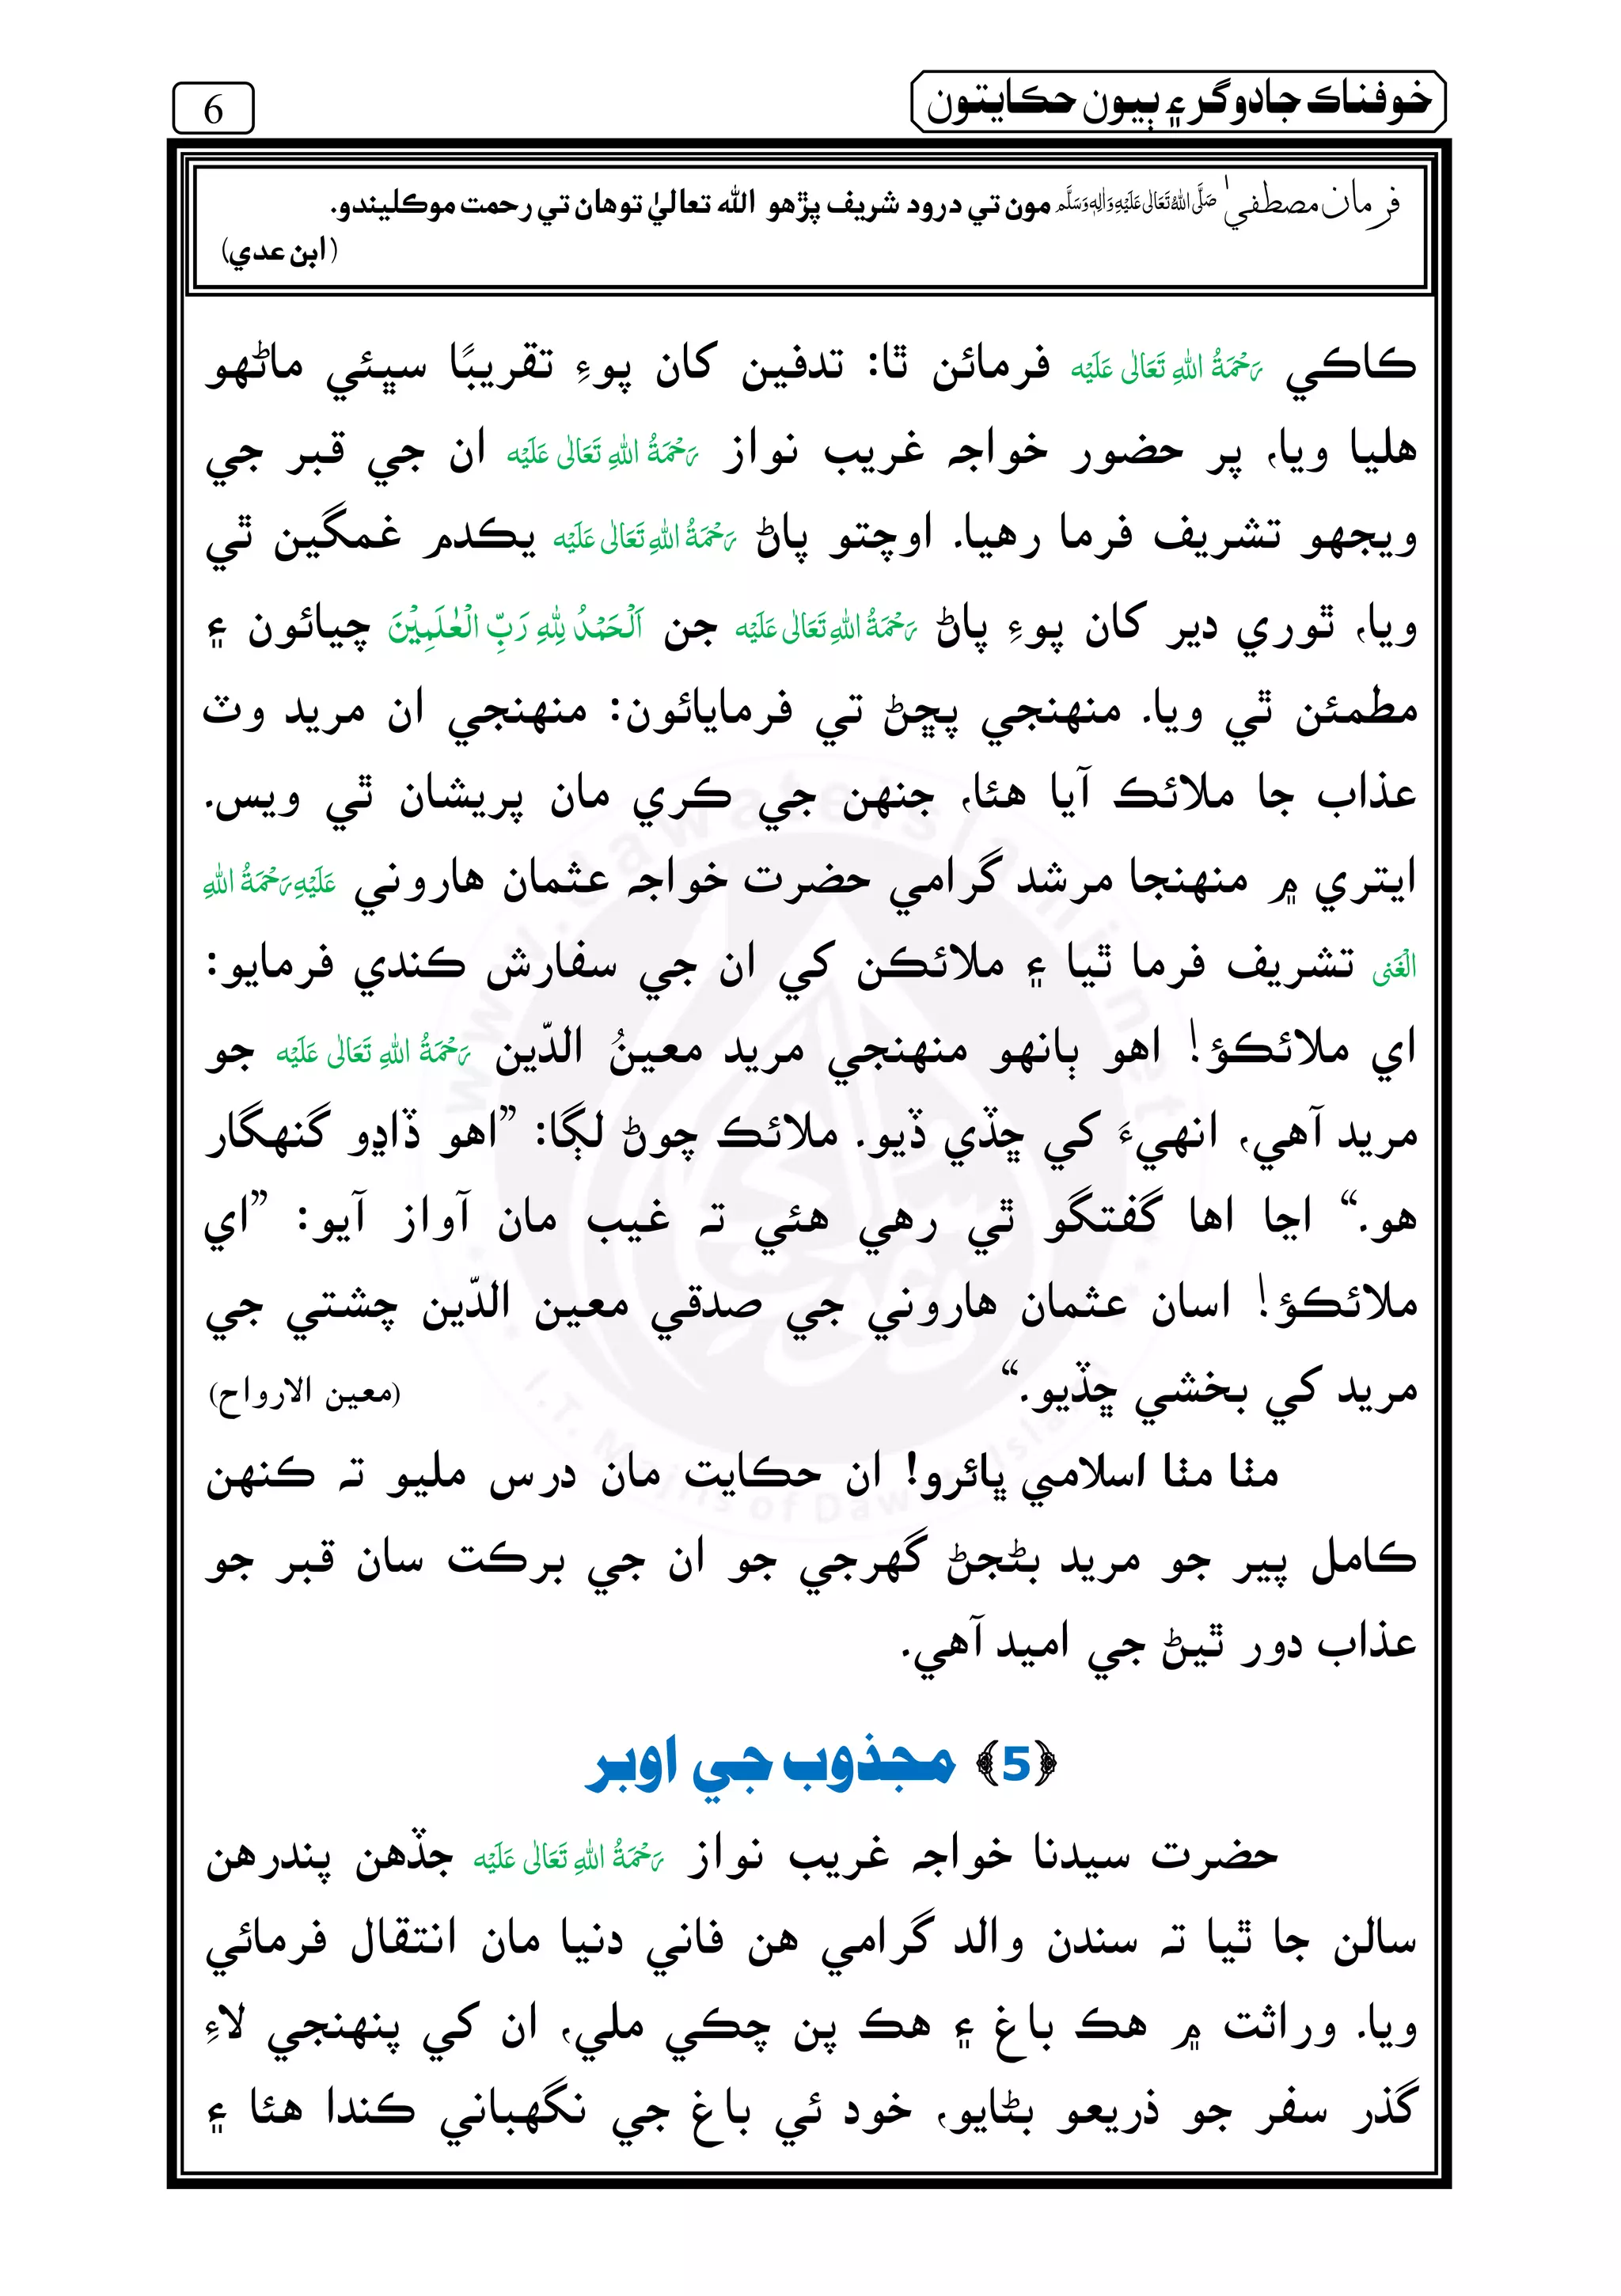 خوفناڪ جادوگر ۽ ٻيون حڪايتون
6
فرمانِ مصطفيٰ صَلَّى اللهُ تَعَالٰى عَلَيْهِ وَاٰلِهٖ وَسَلَّم مون تي درود شريف پڙهو الله تعاليٰ توهان تي رحمت موڪليندو.
(ابن عدي)
ڪاڪي رَحْمَةُ اللهِ تَعَالٰى عَلَيْه فرمائن ٿا: تدفين کان پوءِ تقريبًا سڀئي ماڻهو
هليا ويا، پر حضور خواجہ غريب نواز رَحْمَةُ اللهِ تَعَالٰى عَلَيْه ان جي قبر جي
ويجهو تشريف فرما رهيا. اوچتو پاڻ رَحْمَةُ اللهِ تَعَالٰى عَلَيْه يڪدم غمگين ٿي
ويا، ٿوري دير کان پوءِ پاڻ رَحْمَةُ اللهِ تَعَالٰى عَلَيْه جن اَلْحَمْدُ لِلّٰهِ رَبِّ الْعٰلَمِيْنَ چيائون ۽
مطمئن ٿي ويا. منهنجي پڇڻ تي فرمايائون: منهنجي ان مريد وٽ
عذاب جا ملائڪ آيا هئا، جنهن جي ڪري مان پريشان ٿي ويس.
ايتري ۾ منهنجا مرشد گرامي حضرت خواجہ عثمان هاروني عَلَيْهِ رَحْمَةُ اللهِ
الْغَنِى تشريف فرما ٿيا ۽ ملائڪن کي ان جي سفارش ڪندي فرمايو:
اي ملائڪؤ! اهو ٻانهو منهنجي مريد معينُ الدّين رَحْمَةُ اللهِ تَعَالٰى عَلَيْه جو
مريد آهي، انهيءَ کي ڇڏي ڏيو. ملائڪ چوڻ لڳا: ”اهو ڏاڍو گنهگار
هو.“ اڃا اها گفتگو ٿي رهي هئي تہ غيب مان آواز آيو: ”اي
ملائڪؤ! اسان عثمان هاروني جي صدقي معين الدّين چشتي جي
مريد کي بخشي ڇڏيو.“ (معين الارواح)
مٺا مٺا اسلامي ڀائرو! ان حڪايت مان درس مليو تہ ڪنهن
ڪامل پير جو مريد بڻجڻ گهرجي جو ان جي برڪت سان قبر جو
عذاب دور ٿيڻ جي اميد آهي.
﴿5﴾ مجذوب جي اوبر
حضرت سيدنا خواجہ غريب نواز رَحْمَةُ اللهِ تَعَالٰى عَلَيْه جڏهن پندرهن
سالن جا ٿيا تہ سندن والد گرامي هن فاني دنيا مان انتقال فرمائي
ويا. وراثت ۾ هڪ باغ ۽ هڪ پن چڪي ملي، ان کي پنهنجي لاءِ
گذر سفر جو ذريعو بڻايو، خود ئي باغ جي نگهباني ڪندا هئا ۽